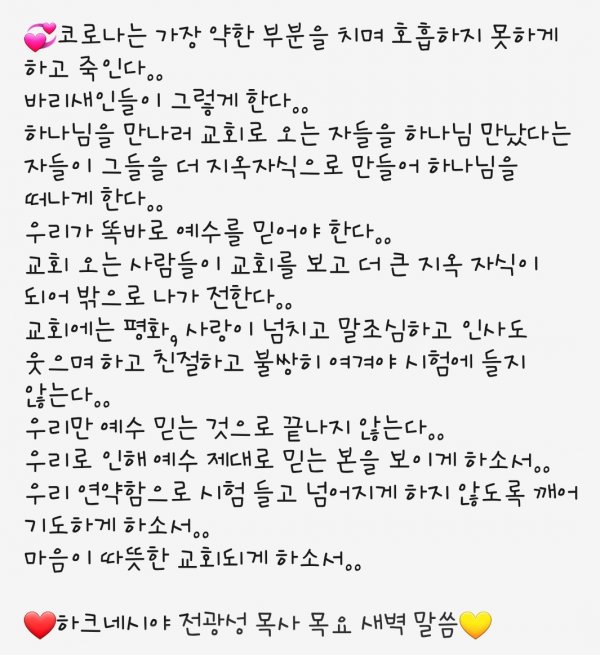 💞코로나는 가장 약한 부분을 치며 호흡하지 못하게
하고 죽인다..
바리새인들이 그렇게 한다..
하나님을 만나러 교회로 오는 자들을 하나님 만났다는
자들이 그들을 더 지옥자식으로 만들어 하나님을
떠나게 한다..
우리가 똑바로 예수를 믿어야 한다..
교회 오는 사람들이 교회를 보고 더 큰 지옥 자식이
되어 밖으로 나가 전한다..
교회에는 평화, 사랑이 넘치고 말조심하고 인사도
웃으며 하고 친절하고 불쌍히 여겨야 시험에 들지
않는다..
우리만 예수 믿는 것으로 끝나지 않는다..
우리로 인해 예수 제대로 믿는 본을 보이게 하소서..
우리 연약함으로 시험 들고 넘어지게 하지 않도록 깨어
기도하게 하소서..
마음이 따뜻한 교회되게 하소서..
❤️하크네시야 전광성 목사 목요 새벽 말씀💛